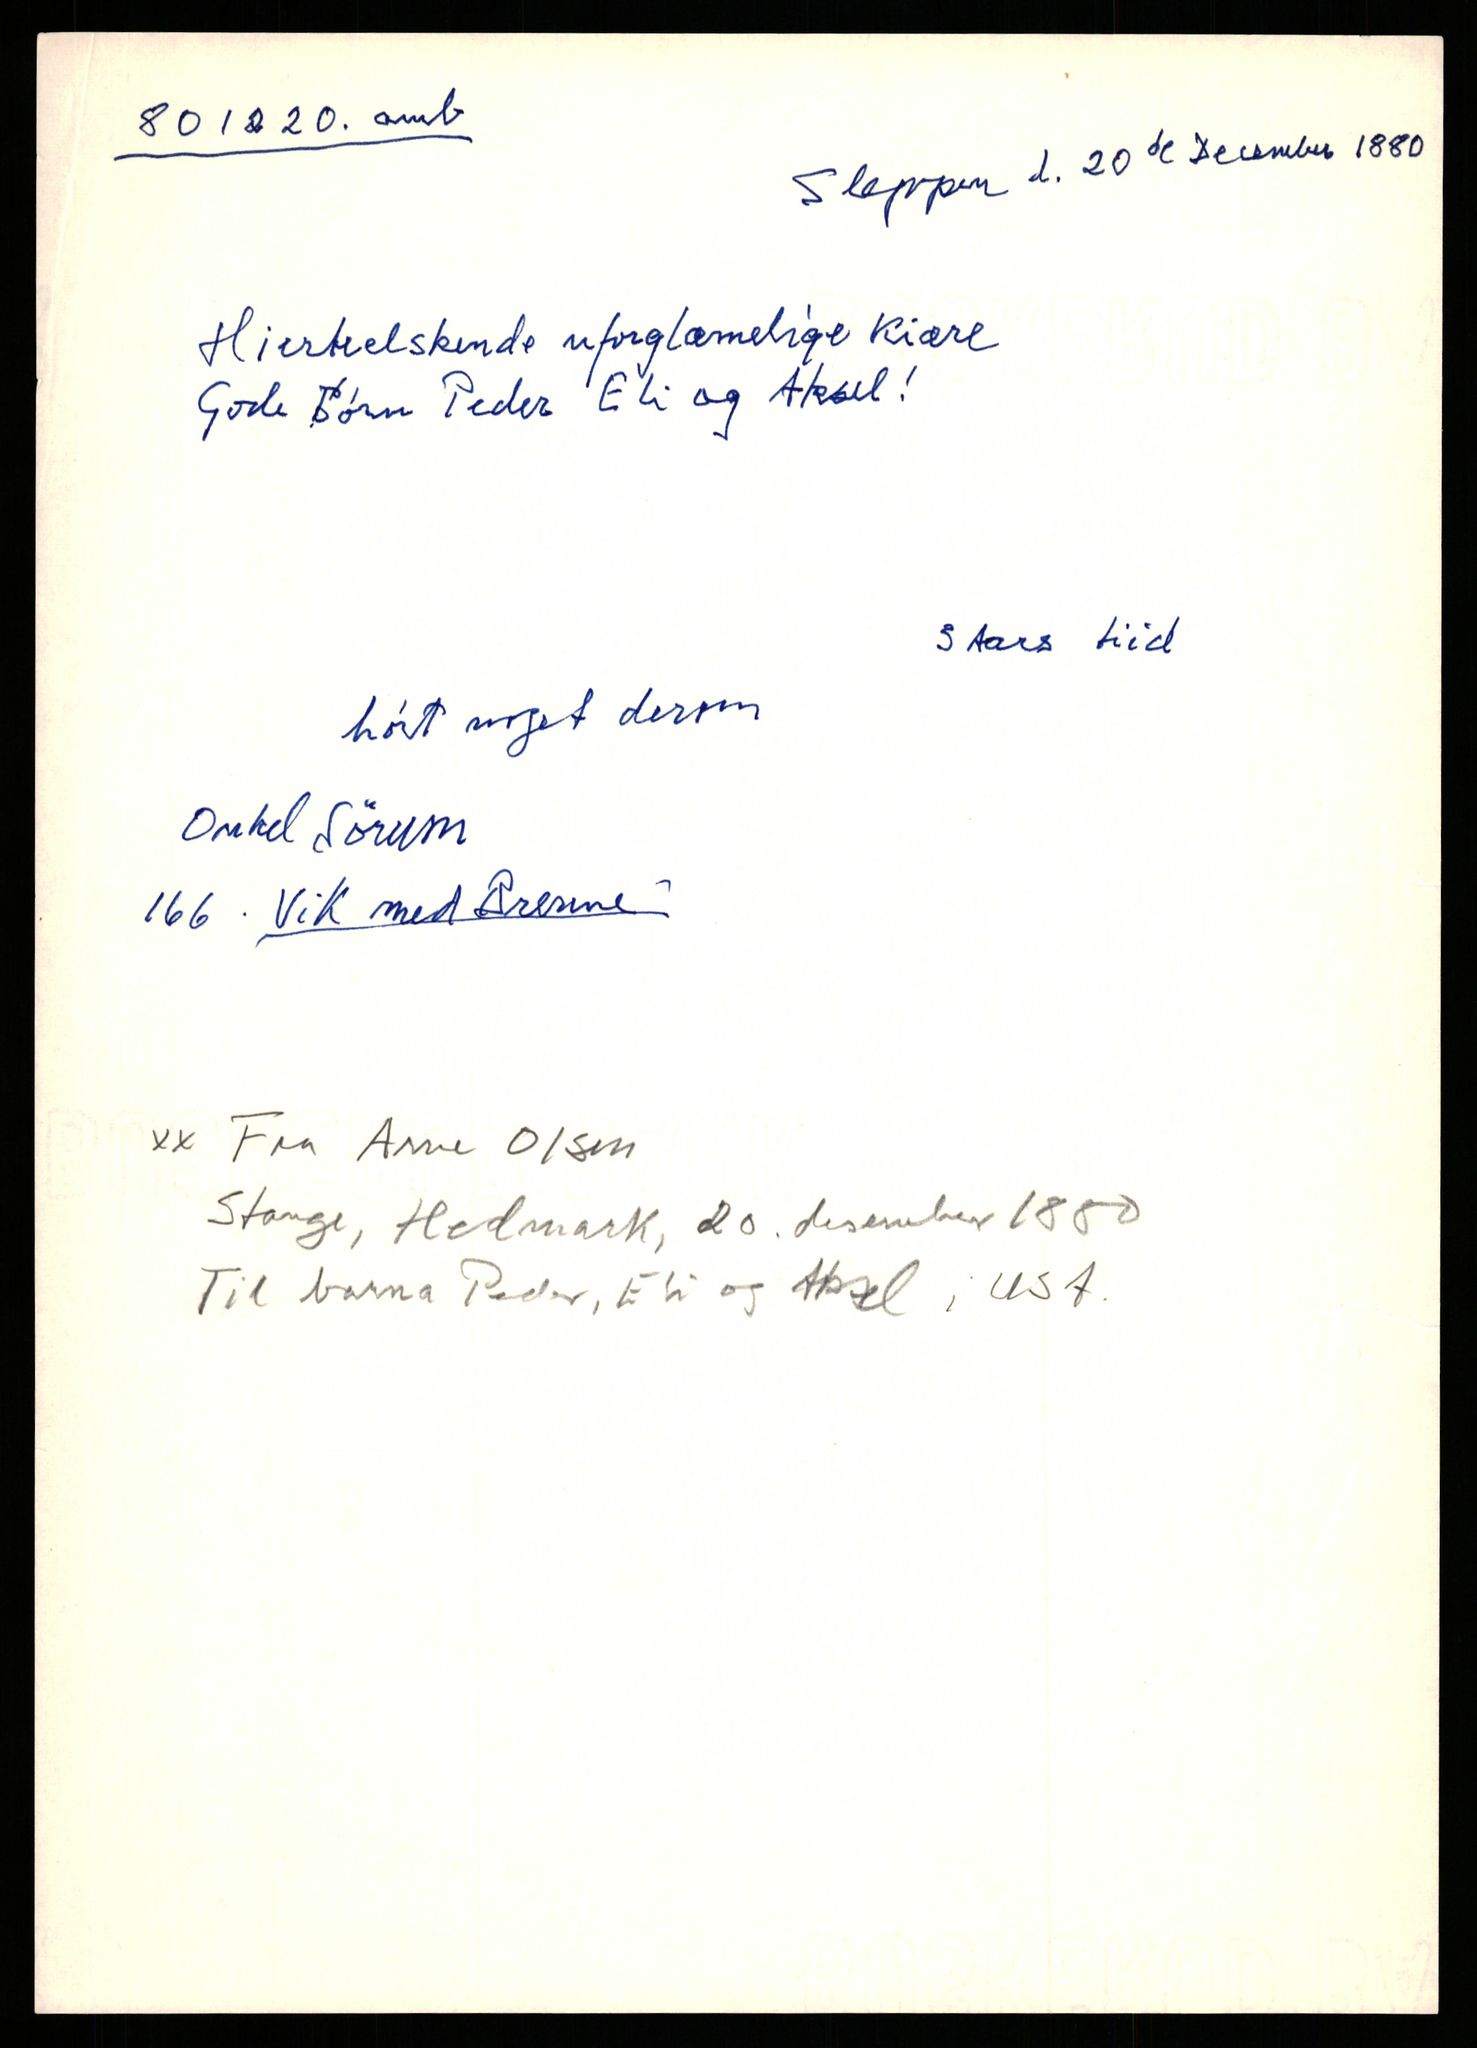 801220. amb
Sleppen d. 20de December 1880
Hierteelskende uforglæmelige Kiære
Gode Børn Peder Eli og Aksel!
3 Aars tiid
hørt noget derom
Onkel Sörum
166. Vik med Brenne
xx Fra Arne Olsen
Stange, Hedmark, 20. desember 1880
Til barna Peder, Eli og Aksel, i USA.